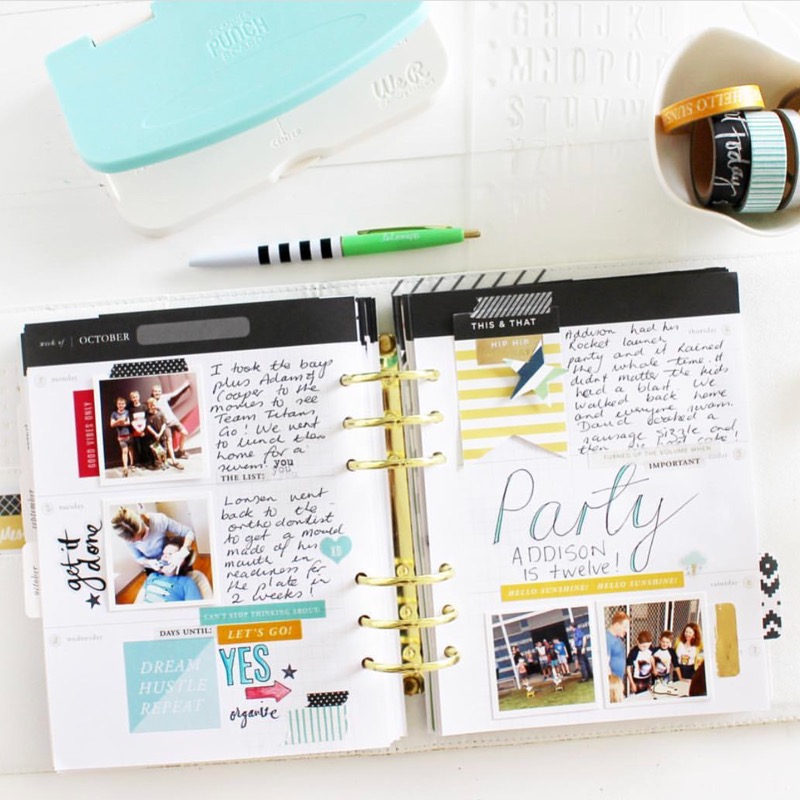 PUNCH
BOARD
We R
GHIJKL
MNOPQR
STUVW
HELLO SUNS
today
week of | OCTOBER
monday
GOOD VIBES ONLY
I took the boys
plus Adam &
Cooper to the
movies to see
Teen Titans
Go! We went
to lunch then
home for a
swim!
you
THE LIST: you
tuesday
get it
done
Lonsen went
back to the
orthodondist
to get a mould
made of his
mouth in
readiness for
the plate in
2 weeks!
XO
CAN'T STOP THINKING ABOUT:
wednesday
DAYS UNTIL:
LET'S GO!
DREAM
HUSTLE
REPEAT
YES
organise
september
october
THIS & THAT
HIP HIP
thursday
Addison had his
Rocket launch
party and it rained
the whole time. It
didnt matter the kids
had a blast. We
walked back home
and everyone swam.
David cooked a
sausage sizzle and
then
cake!
TURNED UP THE VOLUME WHEN
IMPORTANT
Party
ADDISON
IS twelve!
HELLO SUNSHINE! HELLO SUNSHINE!
saturday